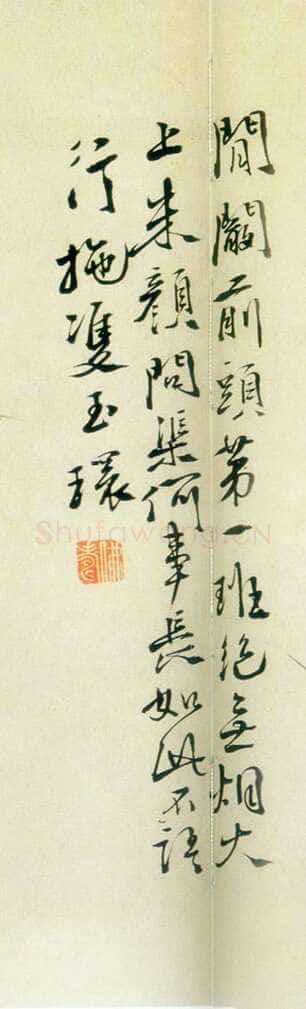 閶闔前頭第一班絕無烟火
上朱顏問渠何事長如此不語
行拖雙玉環
Shufawang.CN